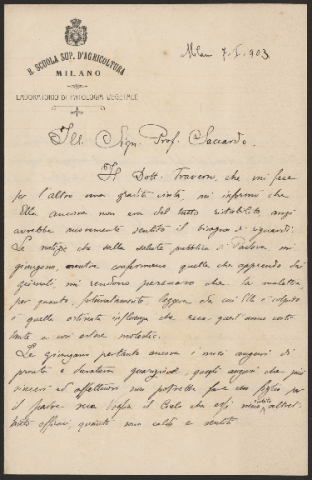 R. SCUOLA SUP. D'AGRICOLTURA
MILANO
LABORATORIO DI PATOLOGIA VEGETALE
Milano 7. I. 903
Ill. Sign. Prof. Saccardo.
Il Dott. Traverso, che mi fece
per l'altro una gradita visita, mi informò che
Ella ancora non era del tutto ristabilito anzi
avrebbe nuovamente sentito il bisogno di riguardi.
Le notizie che sulla salute pubblica di Padova mi
giungono, mentre confermano quelle che apprendo dai
giornali, mi rendono persuaso che la malattia,
per quanto, fortunatamente, leggera da cui Ella è colpito
è quella ostinata influenza che reca quest'anno certe
tante a voi estese molestie.
Le giungano pertanto ancora i miei auguri di
pronta e duratura guarigione, quegli auguri che più
sinceri ed affettuosi non potrebbe fare un figlio per
il padre suo. Voglia il Cielo che essi siano subito altret-
tanto efficaci, quanto sono caldi e sentiti